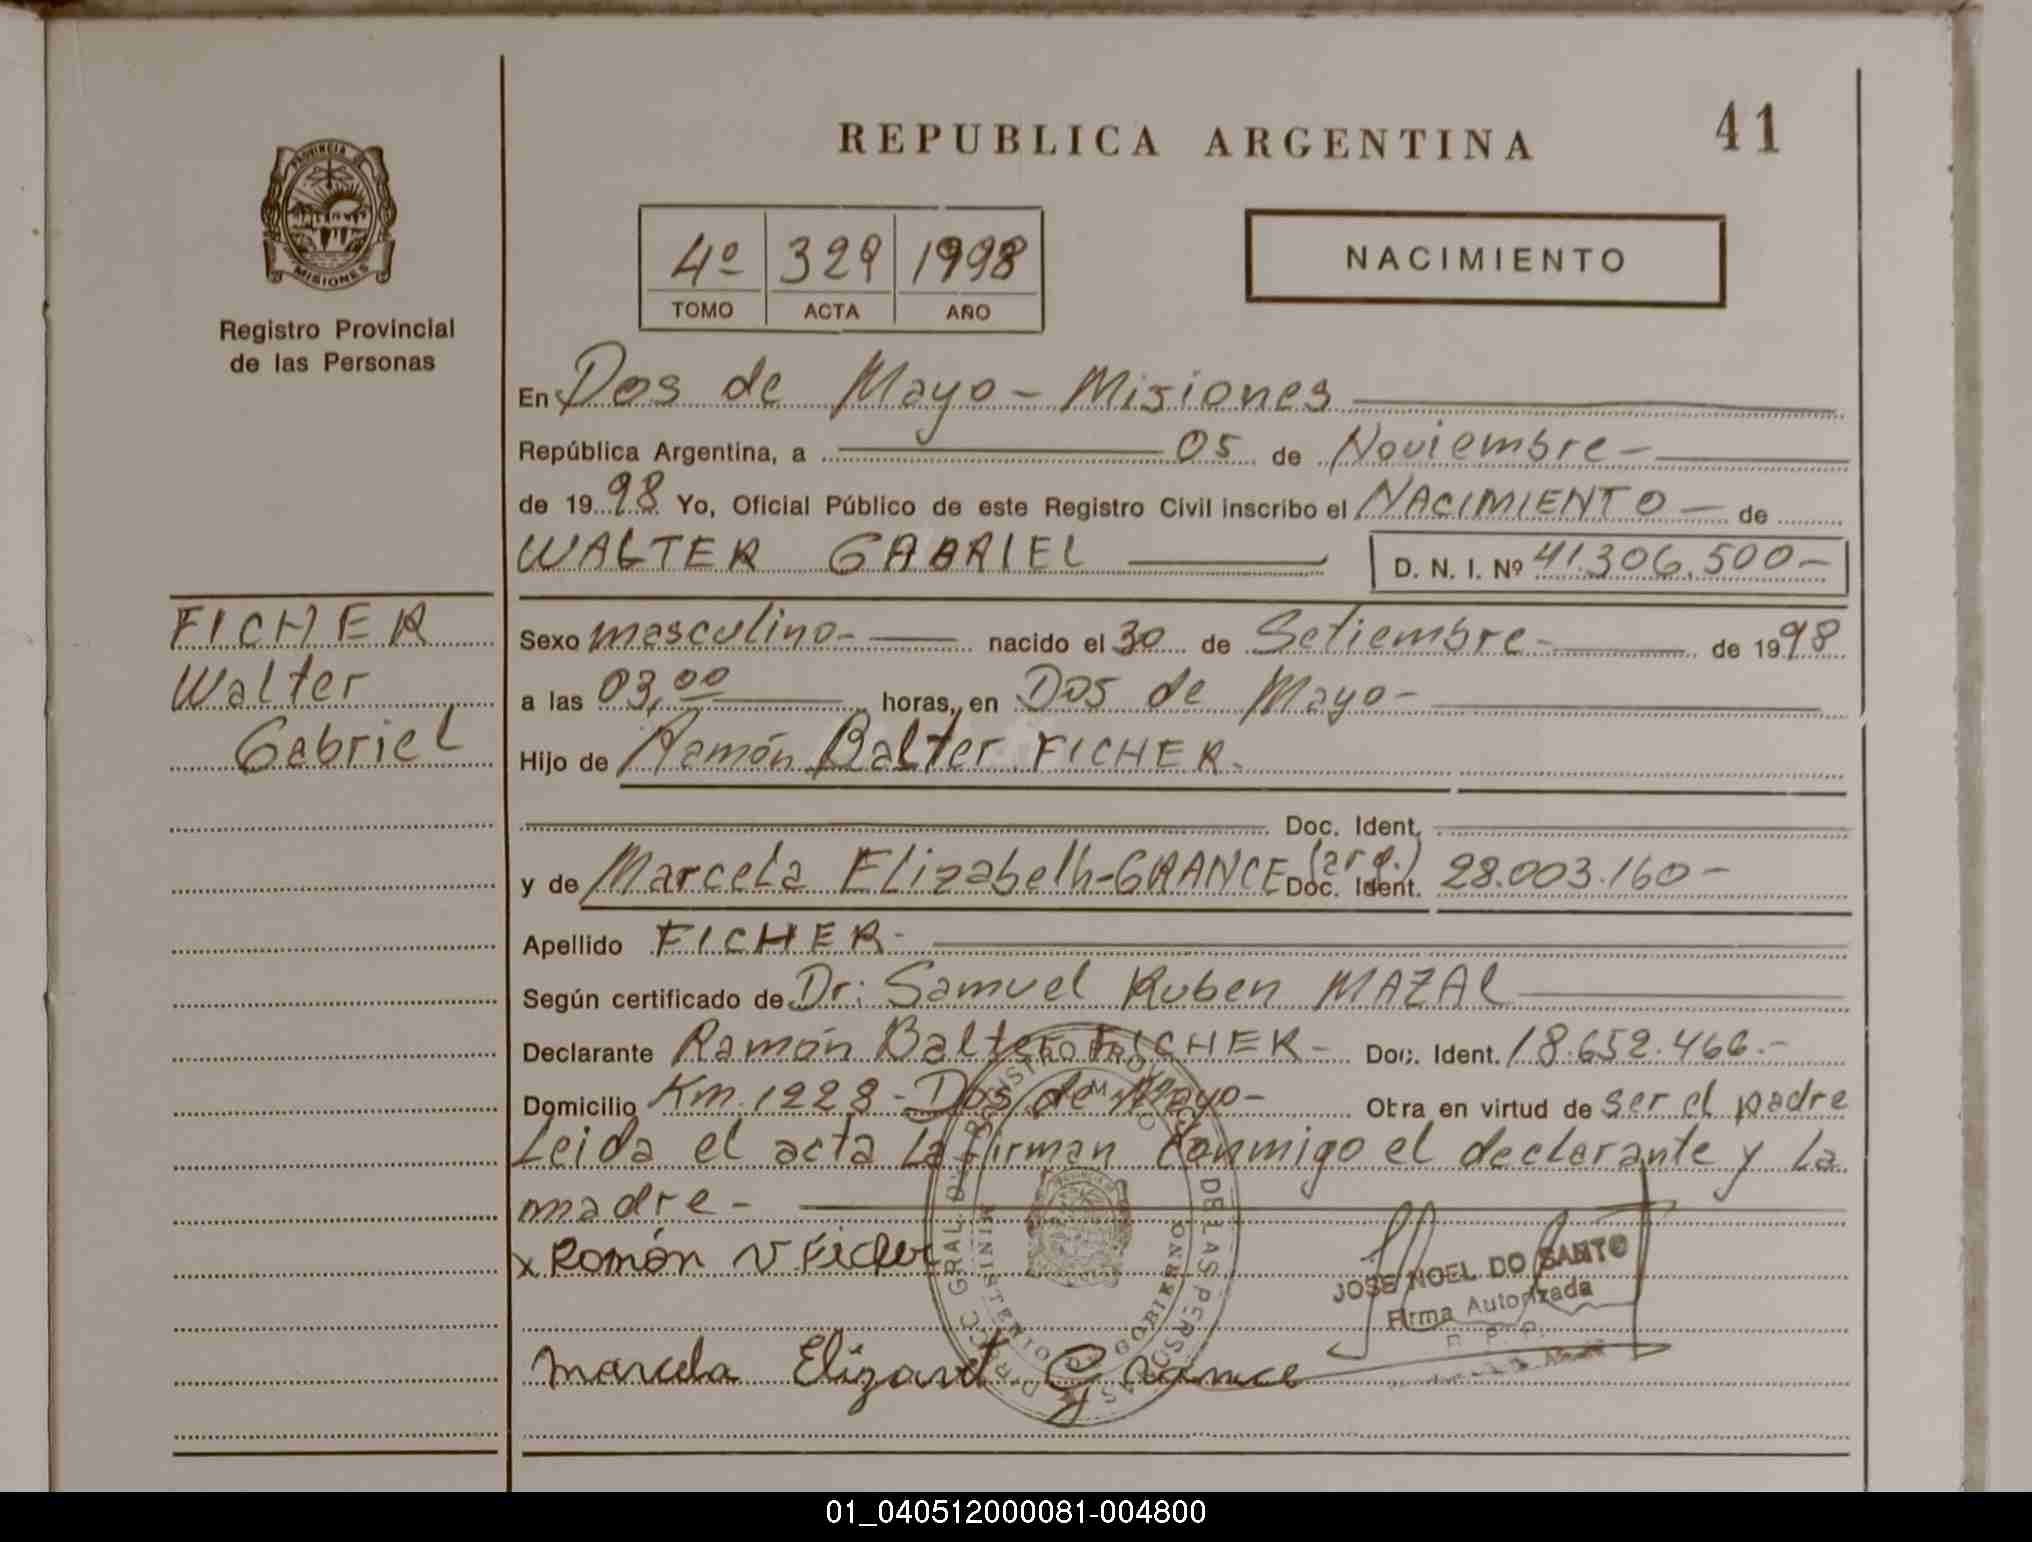 REPUBLICA ARGENTINA
41
PROVINCIA DE
MISIONES
Registro Provincial
de las Personas
4º 329 1998
TOMO ACTA AÑO
NACIMIENTO
En Dos de Mayo - Misiones
República Argentina, a 05 de Noviembre -
de 1998 Yo, Oficial Público de este Registro Civil inscribo el NACIMIENTO - de
WALTER GABRIEL D. N. I. Nº 41.306.500-
FICHER
Walter
Gabriel
Sexo masculino- nacido el 30 de Setiembre- de 1998
a las 03,00 horas, en Dos de Mayo-
Hijo de Ramón Balter FICHER.
Doc. Ident.
y de Marcela Elizabeth-GRANCE (arg.) Doc. Ident. 28.003.160-
Apellido FICHER-
Según certificado de Dr: Samuel Ruben MAZAL
Declarante Ramón Balter FICHER- Doc. Ident. 18.652.466.-
Domicilio Km. 1228 - Dos de Mayo- Obra en virtud de ser el padre
Leida el acta la firman conmigo el declarante y la
madre-
x Román V Ficher
JOSE NOEL DO SANTO
Firma Autorizada
R. P. P.
Marcela Elizavet Grance
MINISTERIO DE GOBIERNO
01_040512000081-004800